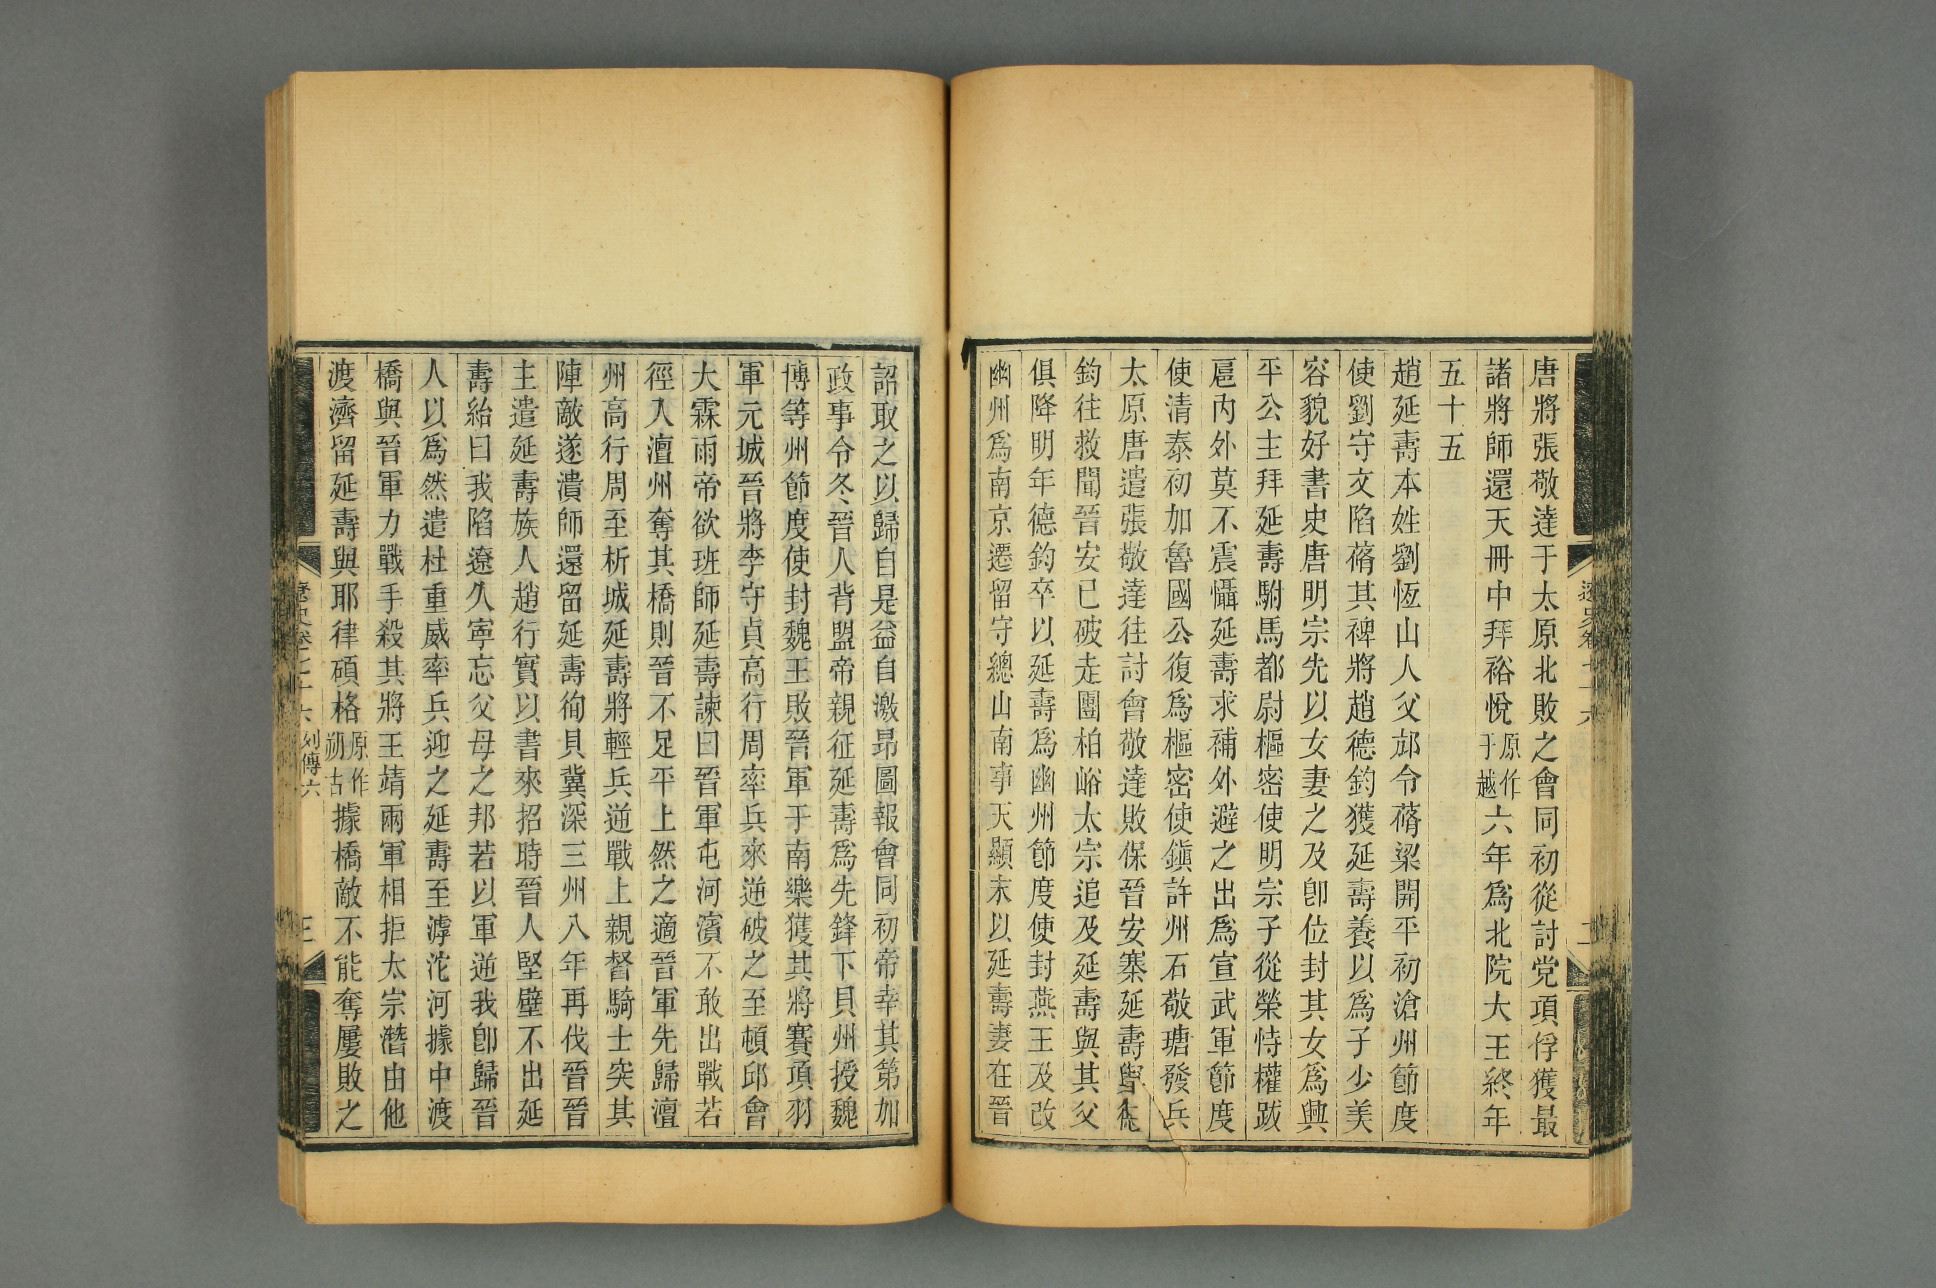 唐將張敬達于太原北敗之會同初從討党項俘獲最
諸將師還天冊中拜裕悅原作于越六年爲北院大王終年
五十五
趙延壽本姓劉恆山人父邟令蓨梁開平初滄州節度
使劉守文陷蓨其裨將趙德鈞獲延壽養以爲子少美
容貌好書史唐明宗先以女妻之及卽位封其女爲興
平公主拜延壽駙馬都尉樞密使明宗子從榮恃權跋
扈內外莫不震懾延壽求補外避之出爲宣武軍節度
使清泰初加魯國公復爲樞密使鎭許州石敬瑭發兵
太原唐遣張敬達往討會敬達敗保晉安寨延壽與德
鈞往救聞晉安已破走團柏峪太宗追及延壽與其父
俱降明年德鈞卒以延壽爲幽州節度使封燕王及改
幽州爲南京遷留守總山南事天顯末以延壽妻在晉
詔取之以歸自是益自激昂圖報會同初帝幸其第加
政事令冬晉人背盟帝親征延壽爲先鋒下貝州授魏
博等州節度使封魏王敗晉軍于南樂獲其將賽項羽
軍元城晉將李守貞高行周率兵來逆破之至頓邱會
大霖雨帝欲班師延壽諫曰晉軍屯河濱不敢出戰若
徑入澶州奪其橋則晉不足平上然之適晉軍先歸澶
州高行周至析城延壽將輕兵逆戰上親督騎士突其
陣敵遂潰師還留延壽徇貝冀深三州八年再伐晉晉
主遣延壽族人趙行實以書來招時晉人堅壁不出延
壽紿曰我陷遼久寧忘父母之邦若以軍逆我卽歸晉
人以爲然遣杜重威率兵迎之延壽至滹沱河據中渡
橋與晉軍力戰手殺其將王靖兩軍相拒太宗潛由他
渡濟留延壽與耶律碩格原作朔古據橋敵不能奪屢敗之
遼史卷七十六 列傳六 三